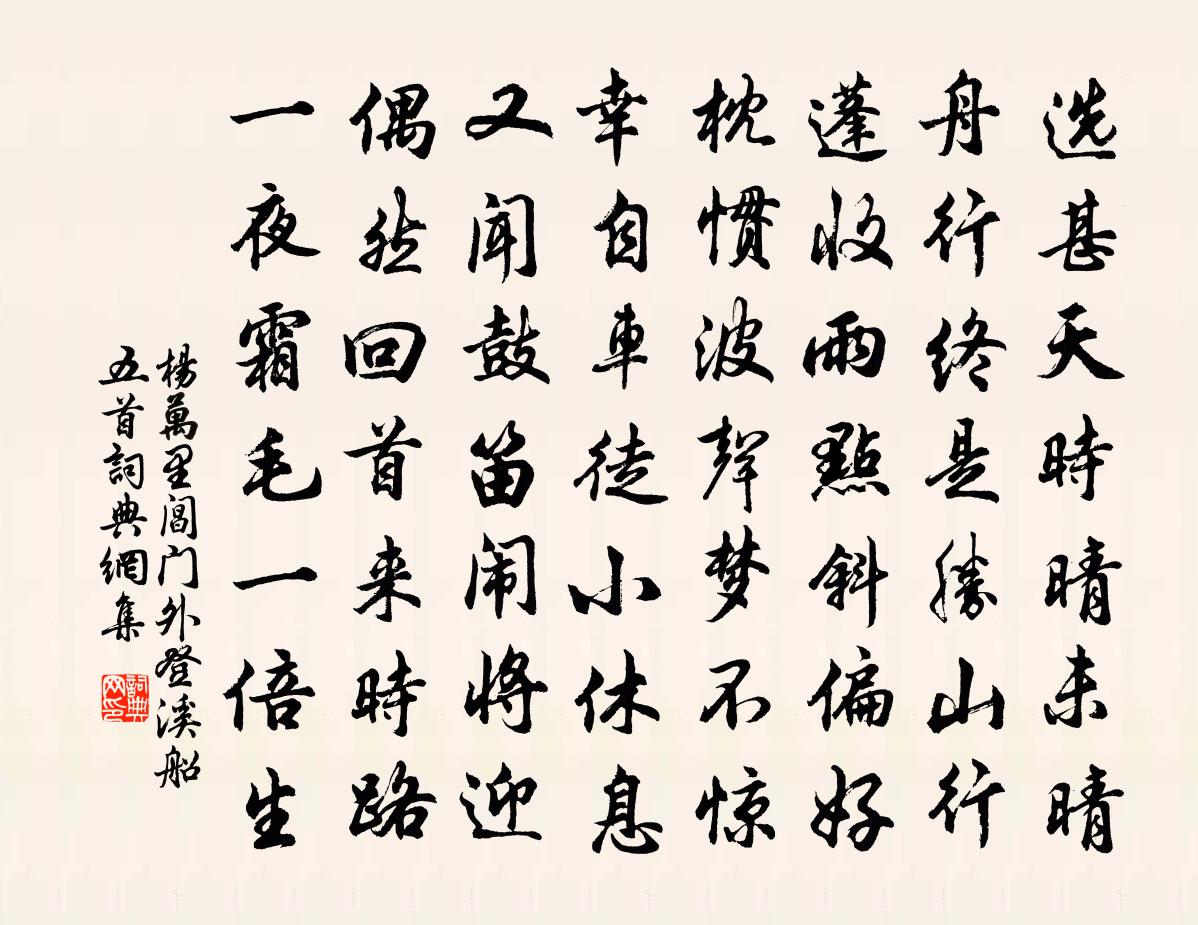 选甚天時晴未晴
舟行终是勝山行
蓬收雨點斜偏好
枕惯波聲梦不惊
幸自車徒小休息
又闻鼓笛闹将迎
偶然回首来時路
一夜霜毛一倍生
楊萬里閶门外登溪船
五首詞典網集
詞典网印